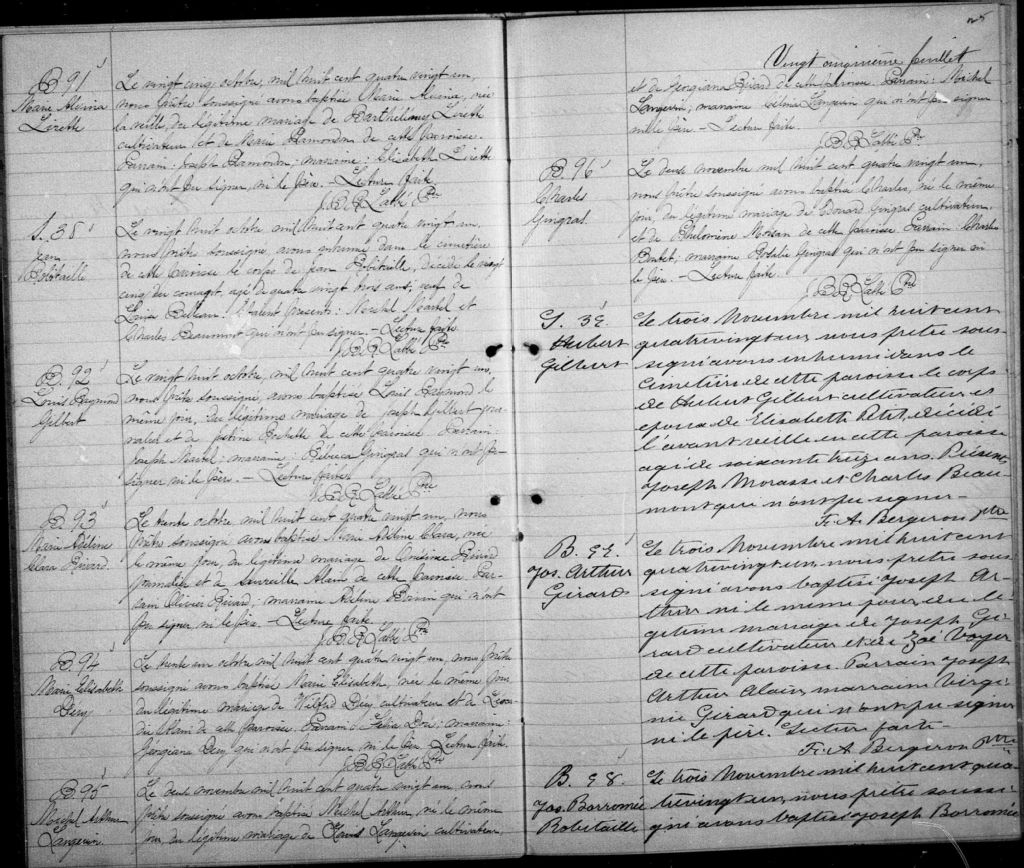 B. 91
Marie Alvina
Lirette
Le vingt cinq octobre, mil huit cent quatre vingt un,
nous prêtre soussigné avons baptisé Marie Alvina, née
la veille, du légitime mariage de Barthélémy Lirette
cultivateur et de Marie Plamondon de cette paroisse.
Parrain: Joseph Plamondon; marraine: Elizabeth Lirette
qui n'ont pu signer, ni le père. — Lecture faite
Ptre
S. 38
Jean
Robitaille
Le vingt huit octobre, mil huit cent quatre vingt un,
nous prêtre soussigné, avons inhumé dans le cimetière
de cette paroisse le corps de Jean Robitaille, décédé le vingt
cinq du courant, agé de quatre vingt trois ans, veuf de
Présents: Michel Martel et
Charles Beaumont qui n'ont pu signer. — Lecture faite
Ptre
B. 92
Louis Raymond
Gilbert
Le vingt huit octobre, mil huit cent quatre vingt un,
nous prêtre soussigné, avons baptisé Louis Raymond le
même jour, du légitime mariage de Joseph Gilbert jour-
nalier et de Justine Rochette de cette paroisse. Parrain:
Joseph Martel; marraine: Rébecca Gingras qui n'ont pu
signer ni le père. — Lecture faite
Ptre
B. 93
Marie Adeline
Clara Rivard
Le trente octobre mil huit cent quatre vingt un, nous
prêtre soussigné avons baptisé Marie Adeline Clara, née
le même jour, du légitime mariage de Onésime Rivard
journalier et de Alain de cette paroisse Par-
rain Olivier Rivard; marraine Adeline qui n'ont
pu signer, ni le père. — Lecture faite
Ptre
B 94
Marie Elisabeth
Dery
Le trente un octobre mil huit cent quatre vingt un, nous prêtre
soussigné avons baptisé Marie Elisabeth, née le même jour
du légitime mariage de Wilfrid Dery cultivateur et de
de cette paroisse. Parrain: marraine:
Georgiana Dery qui n'ont pu signer ni le père Lecture faite.
Ptre
B 95
Michel Arthur
Langevin
Le deux novembre mil huit cent quatre vingt un nous
prêtre soussigné avons baptisé Michel Arthur, né le même
jour du légitime mariage de Langevin cultivateur
25
Vingt cinquième feuillet
et de Georgiana Rivard de cette paroisse. Parrain: Michel
Langevin, marraine Langevin qui n'ont pu signer
ni le père. — Lecture faite.
Ptre
B. 96
Charles
Gingras
Le deux novembre mil huit cent quatre vingt un,
nous prêtre soussigné avons baptisé Charles, né le même
jour, du légitime mariage de Edouard Gingras cultivateur,
et de Philomène de cette paroisse. Parrain: Charles
marraine Rosalie Gingras qui n'ont pu signer ni
le père. — Lecture faite.
Ptre
S. 39.
Hubert
Gilbert
Le trois Novembre mil huit cent
quatrevingt un, nous prêtre sous-
signé avons inhumé dans le
cimetière de cette paroisse le corps
de Hubert Gilbert cultivateur et
époux de Elisabeth Petit, décédé
l'avant veille en cette paroisse
agé de soixante treize ans. Présents
Joseph Morasse et Charles Beau-
mont qui n'ont pu signer —
F. A. Bergeron ptre
B. 97.
Jos. Arthur
Girard
Le trois Novembre mil huit cent
quatrevingt un, nous prêtre sous
signé avons baptisé Joseph Ar-
thur né le même jour, du lé-
gitime mariage de Joseph Gi-
rard cultivateur et de Zoé Voyer
de cette paroisse. Parrain Joseph
Arthur Alain, marraine Virgi-
nie Girard qui n'ont pu signer
ni le père. Lecture faite
F. A. Bergeron ptre
B. 98.
Jos. Borromée
Robitaille
Le trois Novembre mil huit cent qua-
trevingt un, nous prêtre soussi-
gné avons baptisé Joseph Borromée